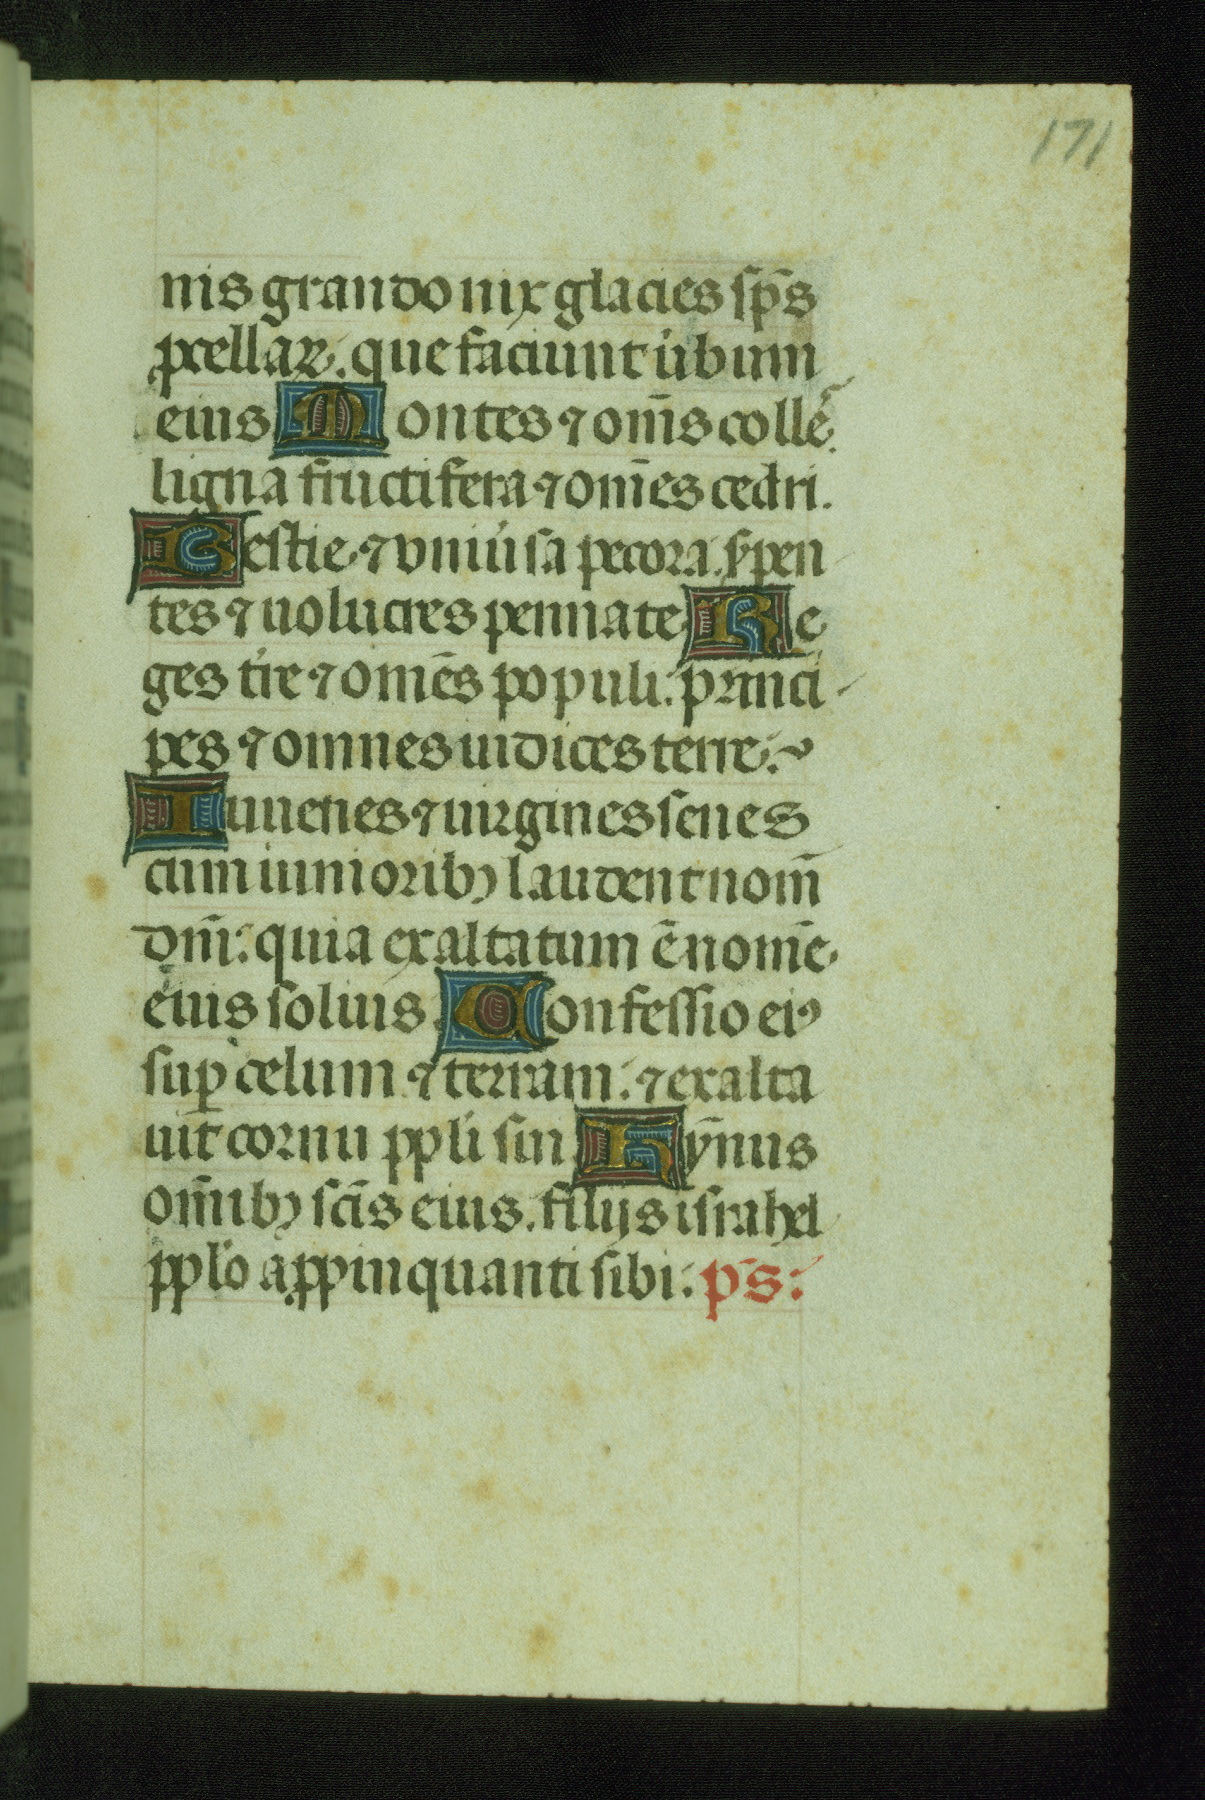 171
nis grando nix glacies sp̄s
ꝓcellaꝝ. que faciunt u̓bum
eius Montes ⁊ om̄s colles.
ligna fructifera ⁊ om̄es cedri.
Bestie ⁊ uniu̓sa pecora. s̓pen
tes ⁊ uolucres pennate Re
ges t̓re ⁊ omēs populi. princi
pes ⁊ omnes iudices terre.
Iuuenes ⁊ uirgines senes
cum iunioribꝫ laudent nom̄
dn̄i: quia exaltatum ē nomē
eius solius Confessio eiꝰ
suꝑ celum ⁊ terram: ⁊ exalta
uit cornu ppl̓i sui Hȳnus
om̄ibꝫ sc̄is eius. filijs israhel
ppl̓o aꝓpinquanti sibi: ps̄: